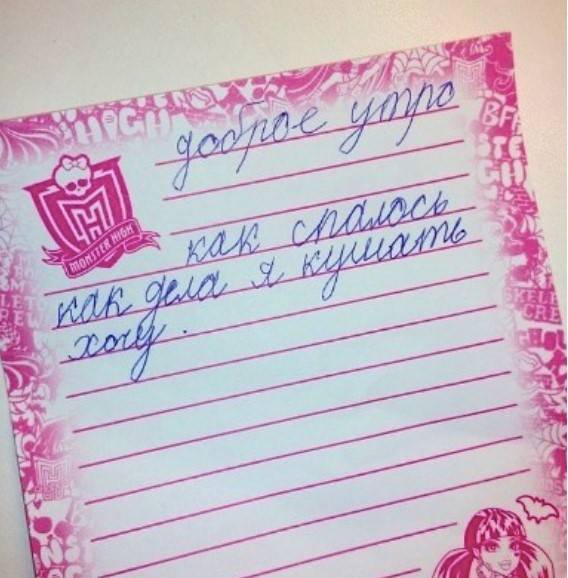 HIGH
доброе утро
BFF
MONSTER HIGH
как спалось
как дела я кушать
хочу.